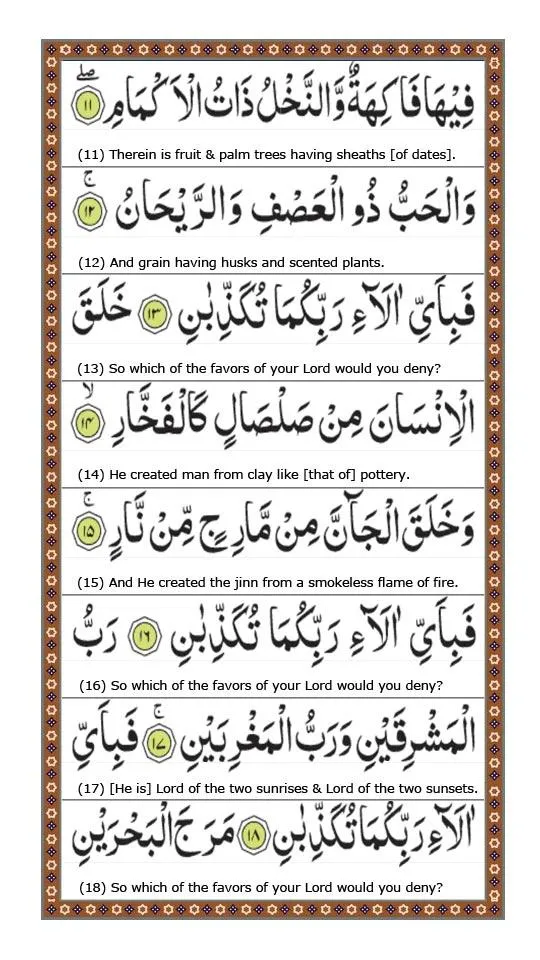 فِيْهَا فَاكِهَةٌ وَّالنَّخْلُ ذَاتُ الْاَكْمَامِ ۖ ۝۱۱
(11) Therein is fruit & palm trees having sheaths [of dates].
وَالْحَبُّ ذُو الْعَصْفِ وَالرَّيْحَانُ ۚ ۝۱۲
(12) And grain having husks and scented plants.
فَبِاَىِّ اٰلَآءِ رَبِّكُمَا تُكَذِّبٰنِ ۝۱۳ خَلَقَ
(13) So which of the favors of your Lord would you deny?
الْاِنْسَانَ مِنْ صَلْصَالٍ كَالْفَخَّارِ ۙ ۝۱۴
(14) He created man from clay like [that of] pottery.
وَخَلَقَ الْجَآنَّ مِنْ مَّارِجٍ مِّنْ نَّارٍ ۚ ۝۱۵
(15) And He created the jinn from a smokeless flame of fire.
فَبِاَىِّ اٰلَآءِ رَبِّكُمَا تُكَذِّبٰنِ ۝۱۶ رَبُّ
(16) So which of the favors of your Lord would you deny?
الْمَشْرِقَيْنِ وَرَبُّ الْمَغْرِبَيْنِ ۚ ۝۱۷ فَبِاَىِّ
(17) [He is] Lord of the two sunrises & Lord of the two sunsets.
اٰلَآءِ رَبِّكُمَا تُكَذِّبٰنِ ۝۱۸ مَرَجَ الْبَحْرَيْنِ
(18) So which of the favors of your Lord would you deny?